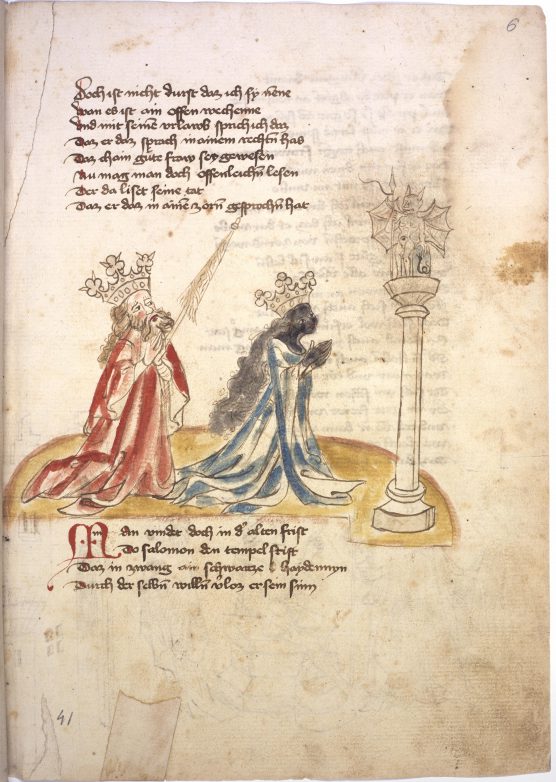 6
Doch ist nicht durft daz ich sy nēne
Wan es ist ain offen wechenne
Vnd mit seinē vrlawb sprich ich daz
Daz er daz sprach in ainem rechtn̄ has
Daz chain gūte fraw sey gewesen
Nu mag man doch offenleichn̄ lesen
Der da liset seine tat
Daz er daz in ainē zorn gesprochn̄ hat
Man vindt doch in d' alten frist
Do salomon den tempel stift
Daz in zwang ain schwartze haydennyn
Durch der selbn̄ willn̄ v'loz er sein sinn
41